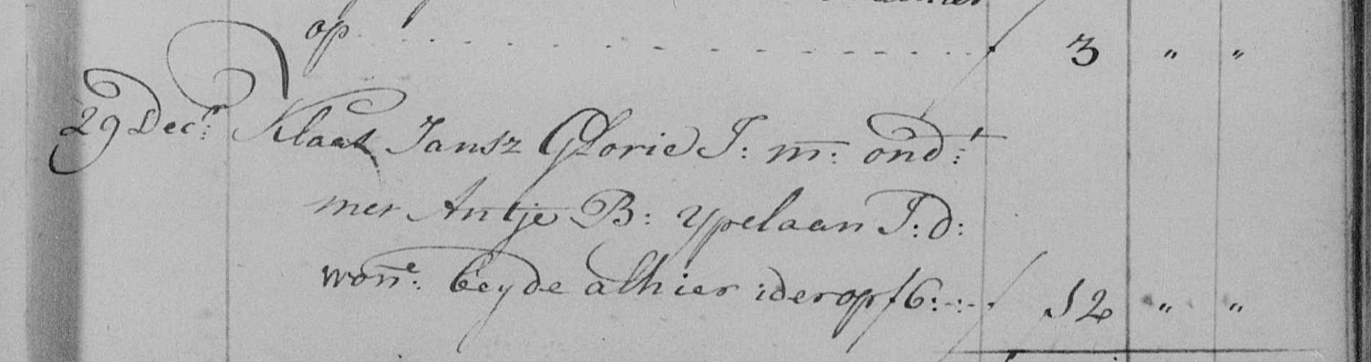 op . . . . . . . . . . . . . . / 3 " "
29 Decr: Klaas Jansz Glorie J: m: ond:t
met Antje B: Ypelaan J: d:
wonE: beyde alhier ider op ƒ6:-:- / 12 " "